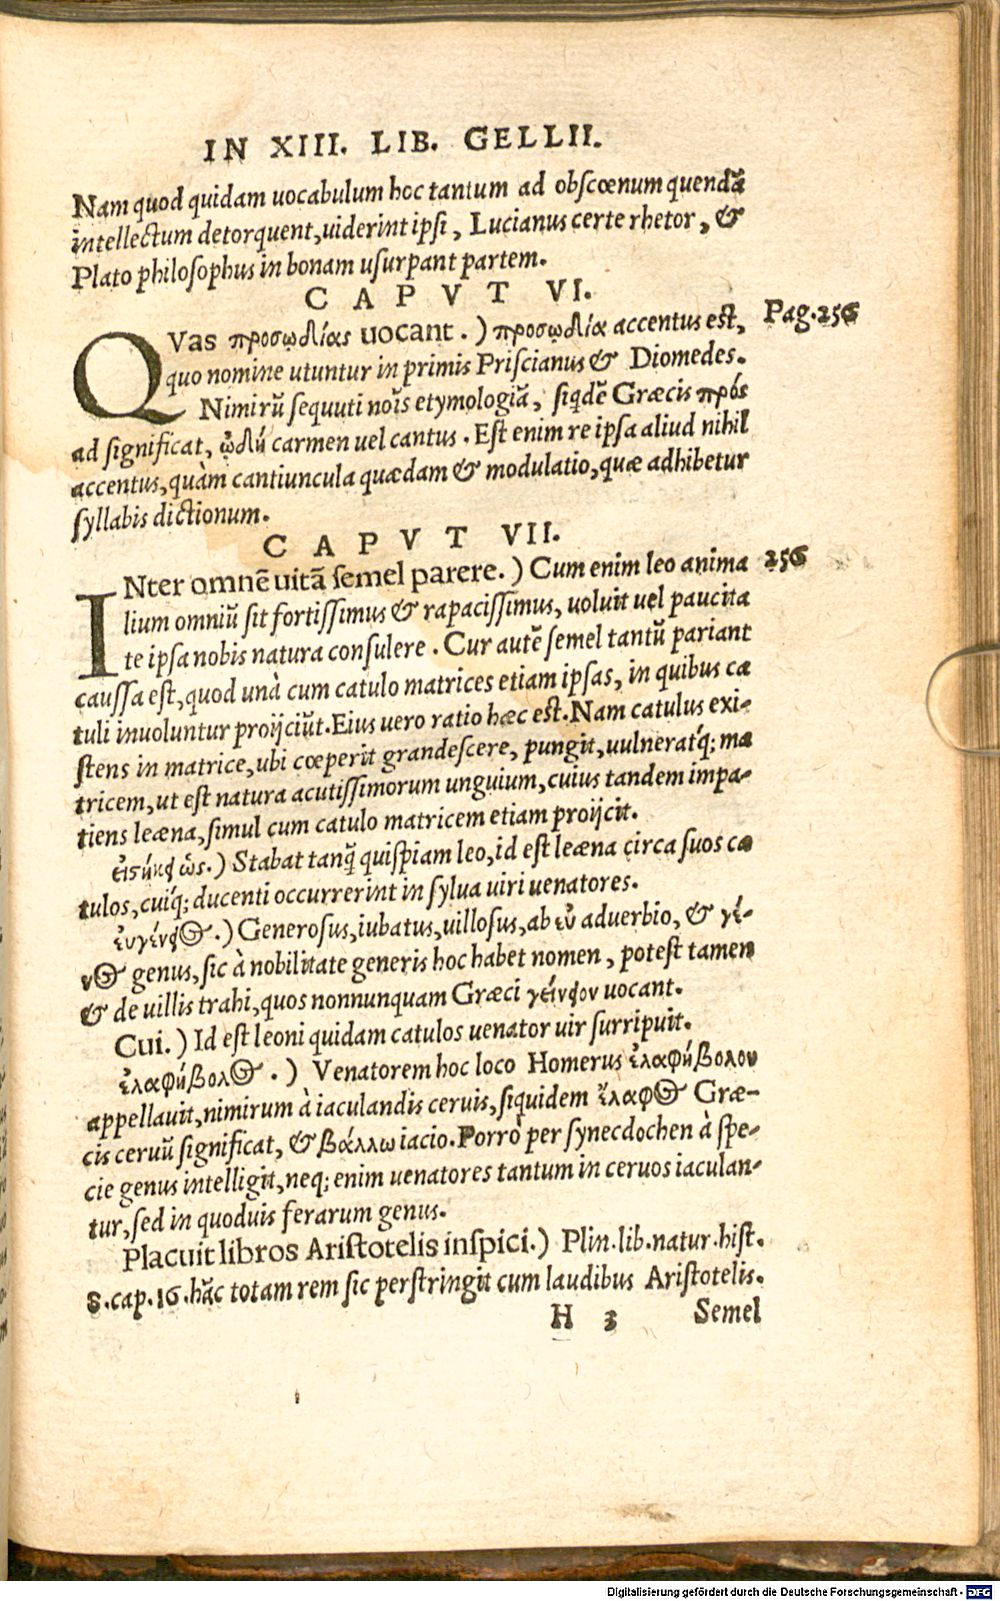 IN XIII. LIB. GELLII.
Nam quod quidam uocabulum hoc tantum ad obscœnum quendã
intellectum detorquent, uiderint ipsi, Lucianus certe rhetor, &
Plato philosophus in bonam usurpant partem.
CAPVT VI.
QVas προσῳδίας uocant.) προσῳδία accentus est, Pag.256
quo nomine utuntur in primis Priscianus & Diomedes.
Nimirũ sequuti noı̃s etymologiã, siqdẽ Græcis πρός
ad significat, ᾠδὴ carmen uel cantus. Est enim re ipsa aliud nihil
accentus, quàm cantiuncula quædam & modulatio, quæ adhibetur
syllabis dictionum.
CAPVT VII.
INter omnẽ uitã semel parere.) Cum enim leo anima 256
lium omniũ sit fortissimus & rapacissimus, uoluit uel paucita
te ipsa nobis natura consulere. Cur autẽ semel tantũ pariant
caussa est, quod unà cum catulo matrices etiam ipsas, in quibus ca
tuli inuoluntur proijciũt. Eius uero ratio hæc est. Nam catulus exi-
stens in matrice, ubi cœperit grandescere, pungit, uulneratq́; ma
tricem, ut est natura acutissimorum unguium, cuius tandem impa-
tiens leæna, simul cum catulo matricem etiam proijcit.
εἱστήκει ὥς.) Stabat tanq̃ quispiam leo, id est leæna circa suos ca
tulos, cuiq́; ducenti occurrerint in sylua uiri uenatores.
ἠυγένειος.) Generosus, iubatus, uillosus, ab εὖ aduerbio, & γέ-
νος genus, sic à nobilitate generis hoc habet nomen, potest tamen
& de uillis trahi, quos nonnunquam Græci γένειον uocant.
Cui.) Id est leoni quidam catulos uenator uir surripuit.
ἐλαφήβολος.) Venatorem hoc loco Homerus ἐλαφήβολον
appellauit, nimirum à iaculandis ceruis, siquidem ἔλαφος Græ-
cis ceruũ significat, & βάλλω iacio. Porro per synecdochen à spe-
cie genus intelligit, neq; enim uenatores tantum in ceruos iaculan-
tur, sed in quoduis ferarum genus.
Placuit libros Aristotelis inspici.) Plin. lib. natur. hist.
8. cap. 16. hãc totam rem sic perstringit cum laudibus Aristotelis.
H 3 Semel
Digitalisierung gefördert durch die Deutsche Forschungsgemeinschaft - DFG